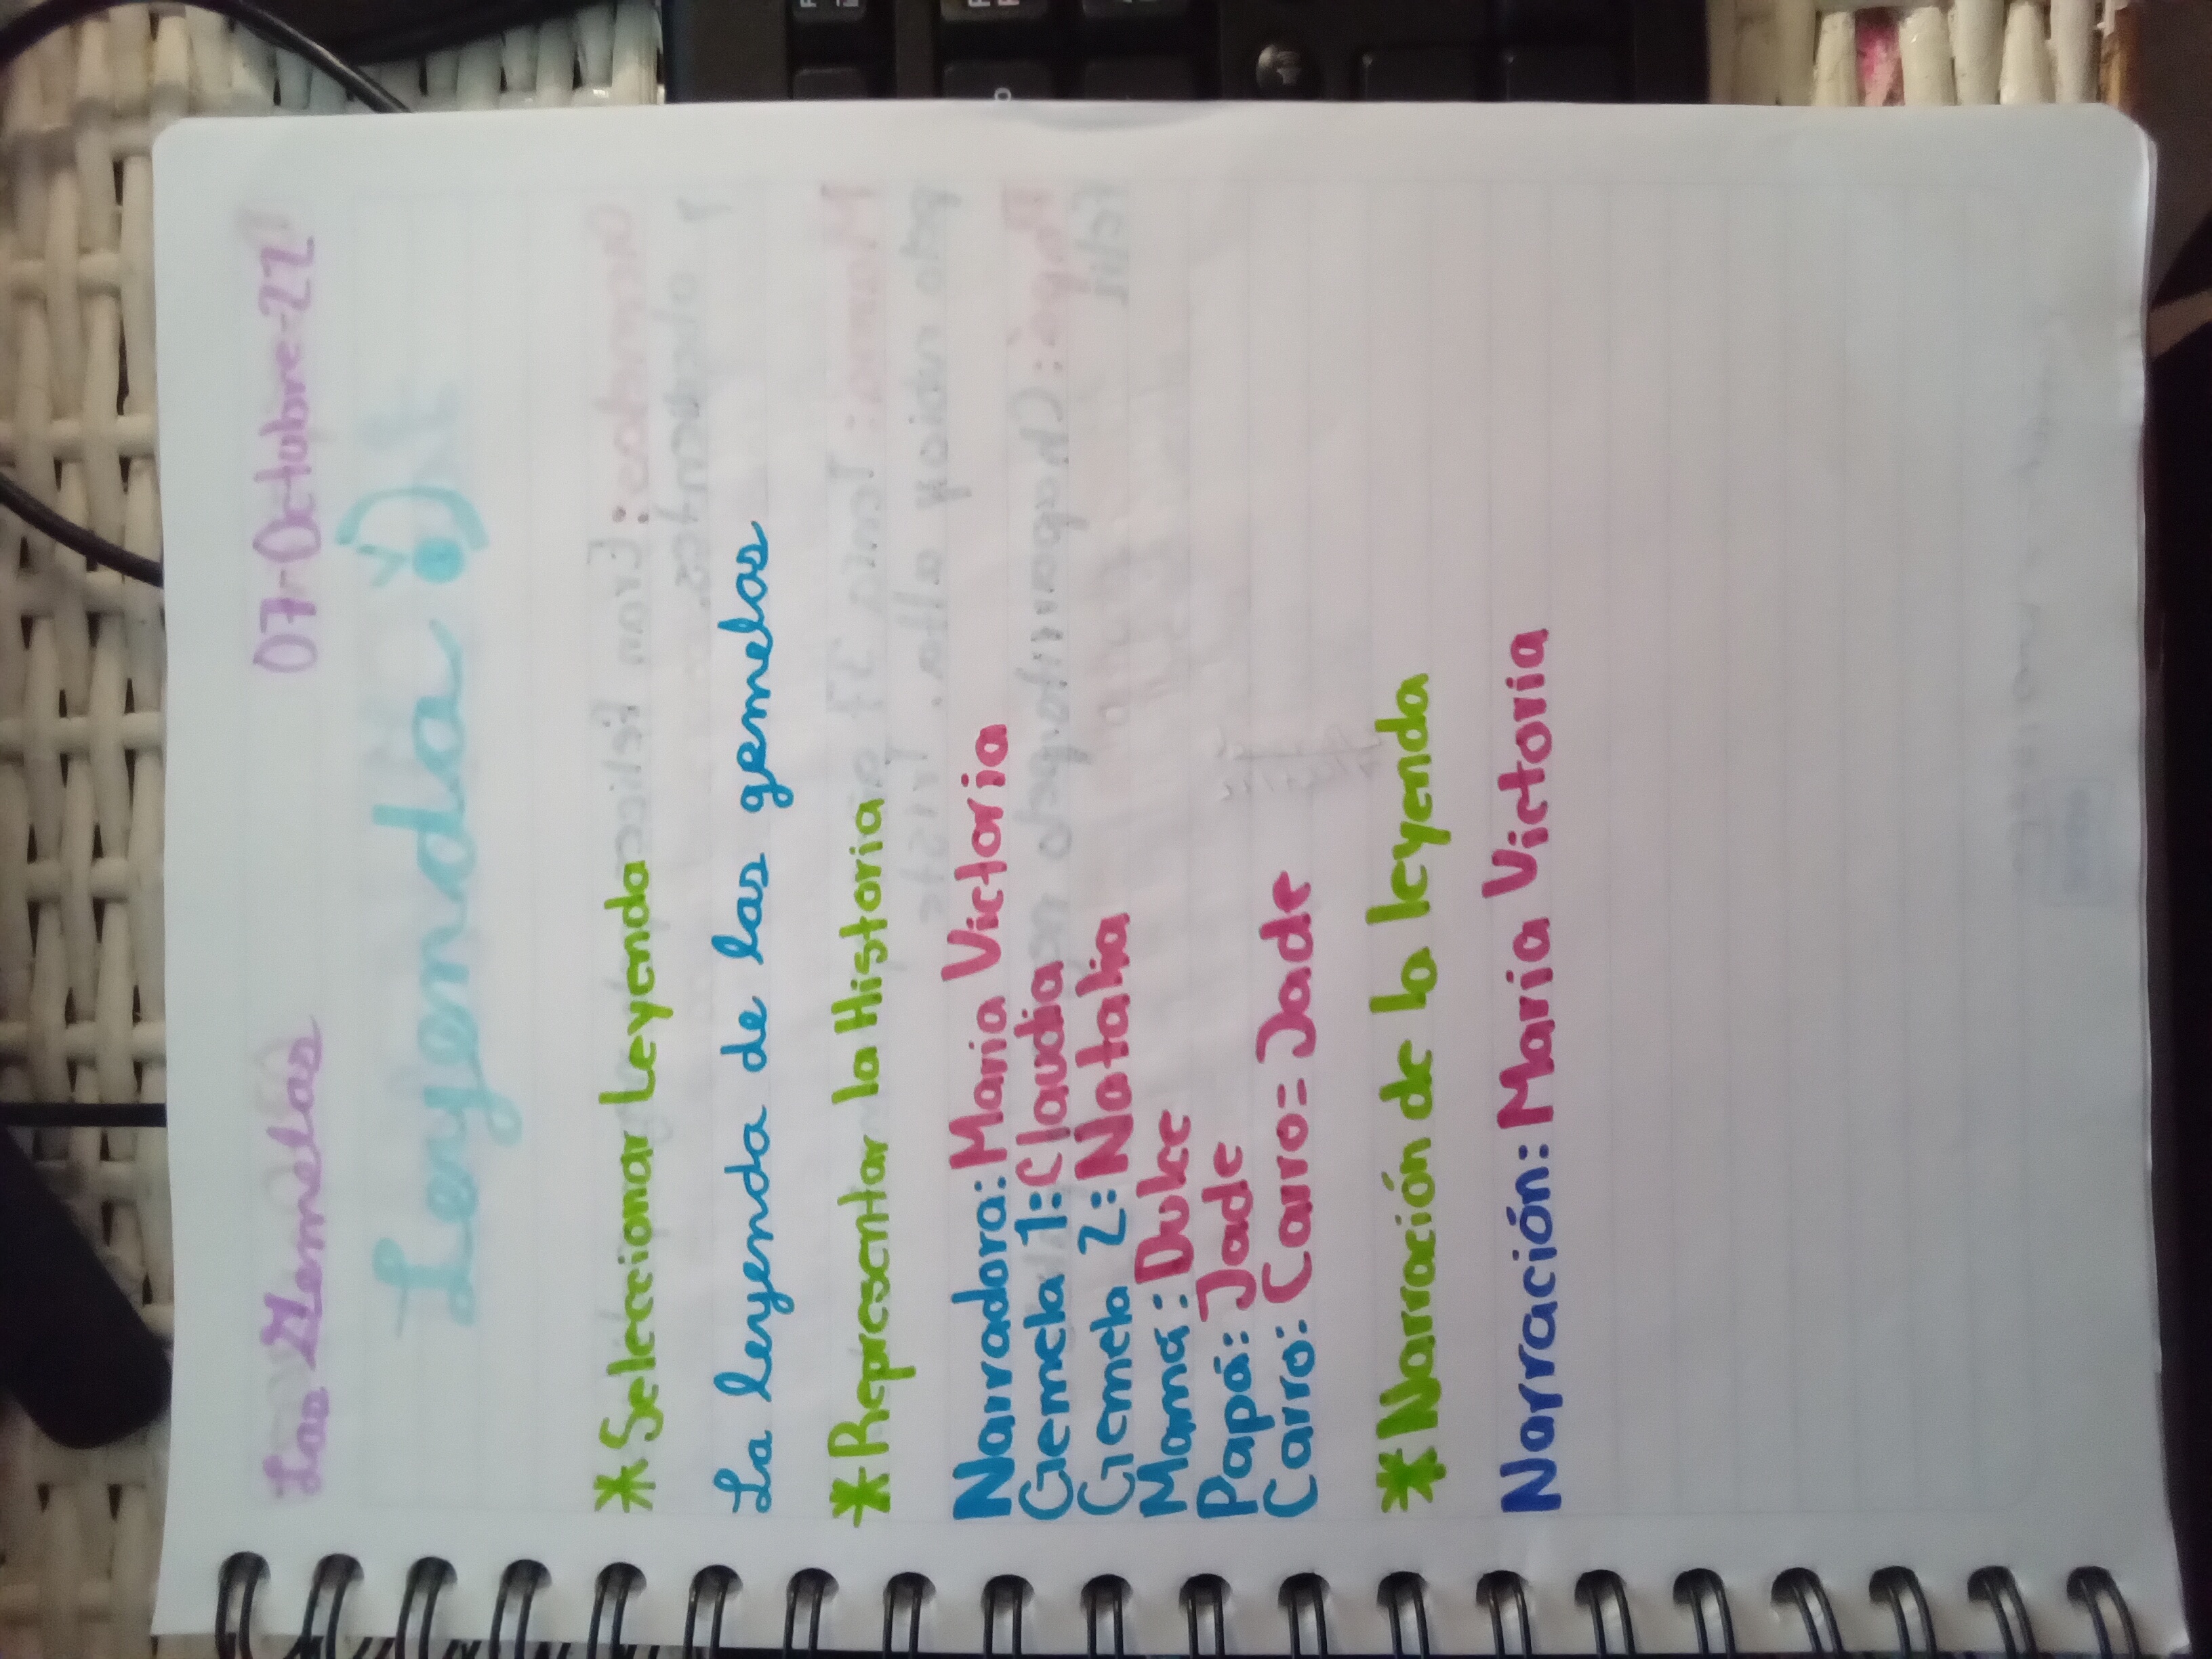 Las Gemelas 07-Octubre-22
Leyenda
*Seleccionar Leyenda
La leyenda de las gemelas
*Representar la Historia
Narradora: Maria Victoria
Gemela 1: Claudia
Gemela 2: Natalia
Mamá: Dulce
Papá: Jade
Carro: Carro= Jade
*Narración de la leyenda
Narración: Maria Victoria